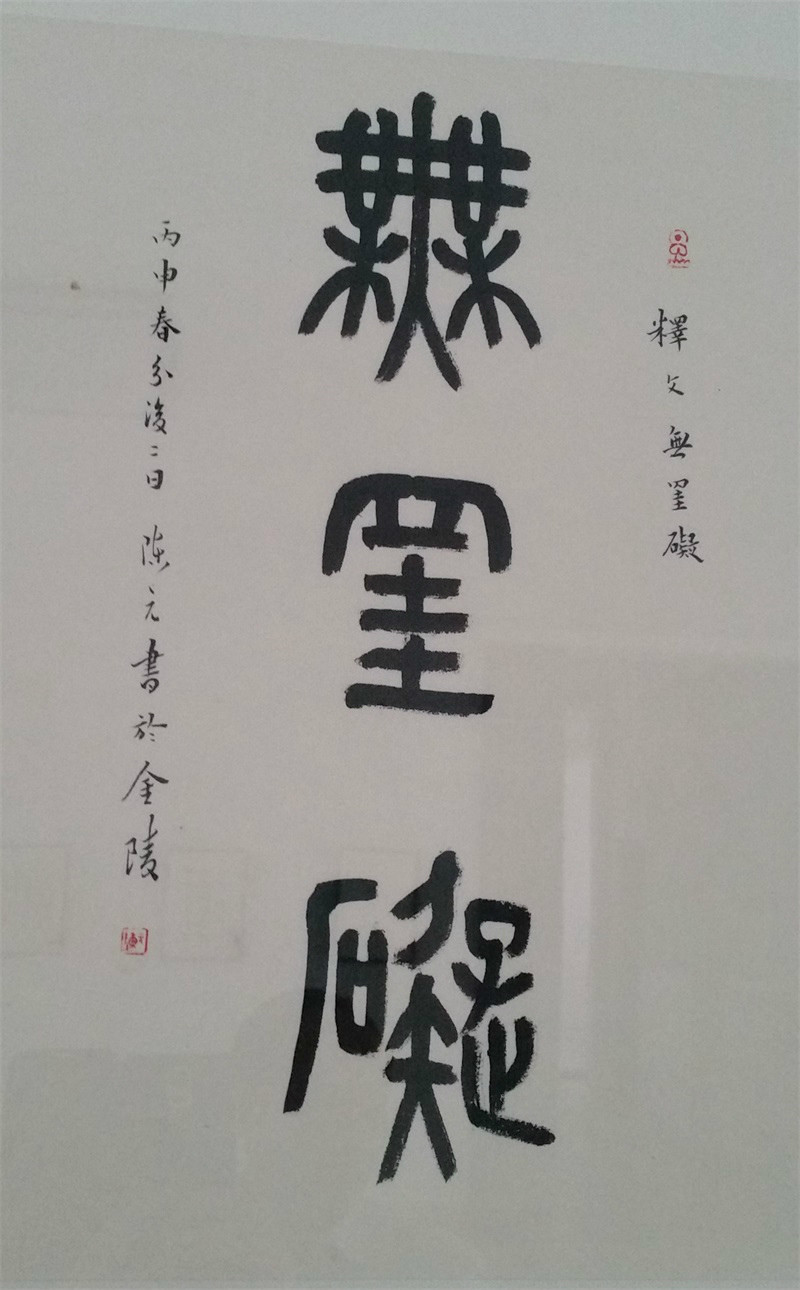 釋文無罣礙
無罣礙
丙申春分後二日陳元書於金陵